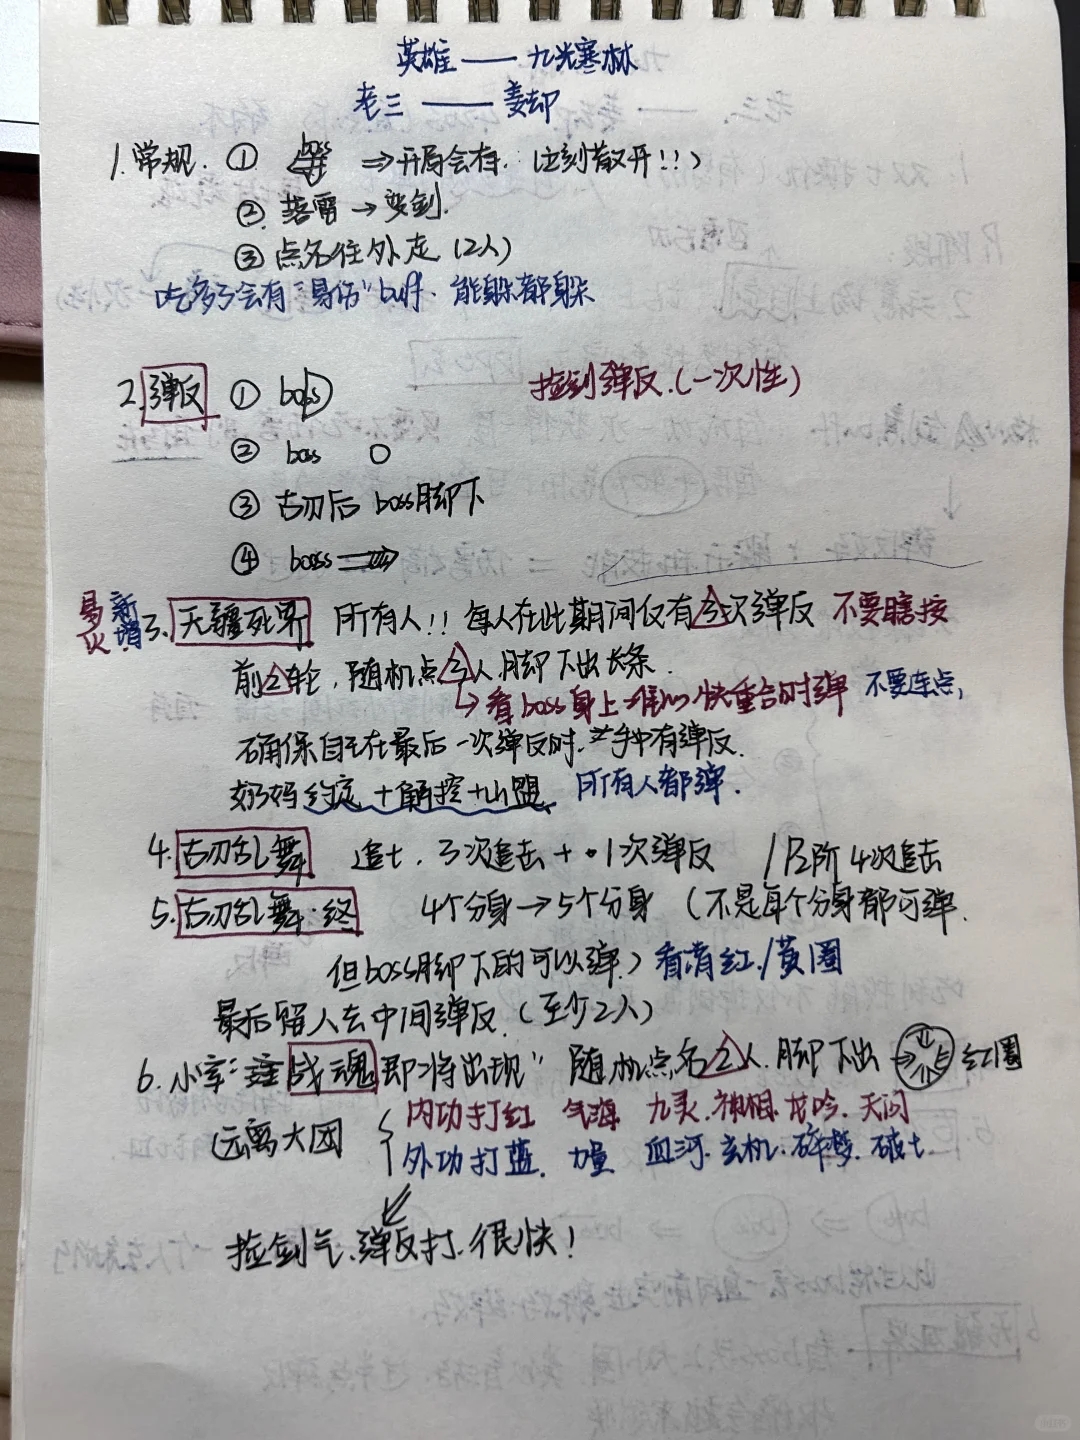 英雄 —— 九光寒林
老三 —— 姜却
1.常规. ① boss ⇒开局会有. (立刻散开!!)
② 落雷→变剑.
③ 点名往外走 (2人)
吃多了会有"易伤"buff. 能躲都躲
2.弹反 ① boss 捡到弹反.(一次性)
② boss
③ 古刃后 boss脚下
④ boss ⇒
易伙 新增 3.无疆死界 所有人!! 每人在此期间仅有3次弹反 不要瞎按
前2轮, 随机点3人脚下出长条.
↳看boss身上 快重合时弹 不要连点,
确保自己在最后一次弹反时. 手中有弹反.
奶妈 约定+解控+山盟, 所有人都弹.
4.古刃乱舞 追七. 3次追击+1次弹反 / P2阶4次追击
5.古刃乱舞·终 4个分身→5个分身 (不是每个分身都可弹.
但boss脚下的可以弹.) 看清红/黄圈
最后留人去中间弹反.(至少2人)
6.小字: 战魂即将出现" 随机点名2人. 脚下出→ 红圈
远离大团 { 内功打红 气海 九灵.神相.龙吟.天问
外功打蓝. 力量 血河.玄机.碎梦.
捡剑气.弹反打.很快!